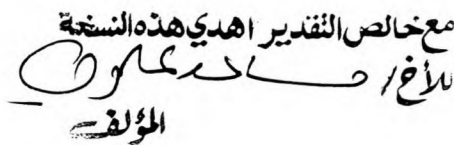 مع خالص التقدير اهدي هذه النسخة
للأخ /
المؤلف